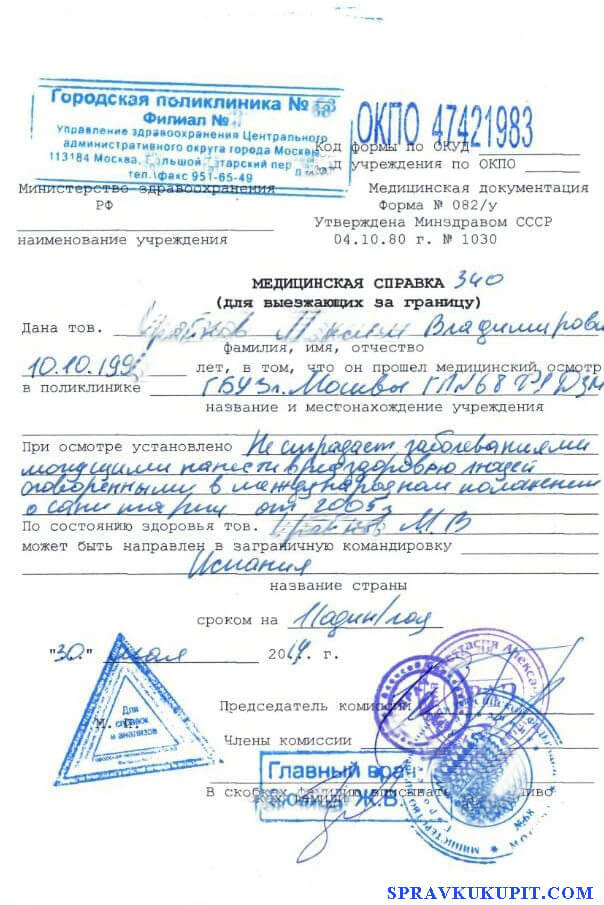 Городская поликлиника №
Филиал №
Управление здравоохранения Центрального
административного округа города Москвы
113184 Москва, Большой Татарский пер
тел.\факс 951-65-49
ОКПО 47421983
Код формы по ОКУД
Код учреждения по ОКПО
Министерство здравоохранения
РФ
наименование учреждения
Медицинская документация
Форма № 082/у
Утверждена Минздравом СССР
04.10.80 г. № 1030
МЕДИЦИНСКАЯ СПРАВКА 340
(для выезжающих за границу)
Дана тов. Владимирови
фамилия, имя, отчество
10.10.199 лет, в том, что он прошел медицинский осмотр
в поликлинике ГБУЗ г. Москвы ГП №68 Ф1 ДЗМ
название и местонахождение учреждения
При осмотре установлено Не страдает заболеваниями
могущими нанести вред здоровью людей
оговоренными в международном положении
о санитарии от 2005г
По состоянию здоровья тов. М.В
может быть направлен в заграничную командировку
Испания
название страны
сроком на 1/один/год
"30" мая 2014. г.
Для
справок
и анализов
М. П.
Председатель комиссии
Члены комиссии
Главный врач
Ж.В
В скобках фамилию вписывать
SPRAVKUKUPIT.COM